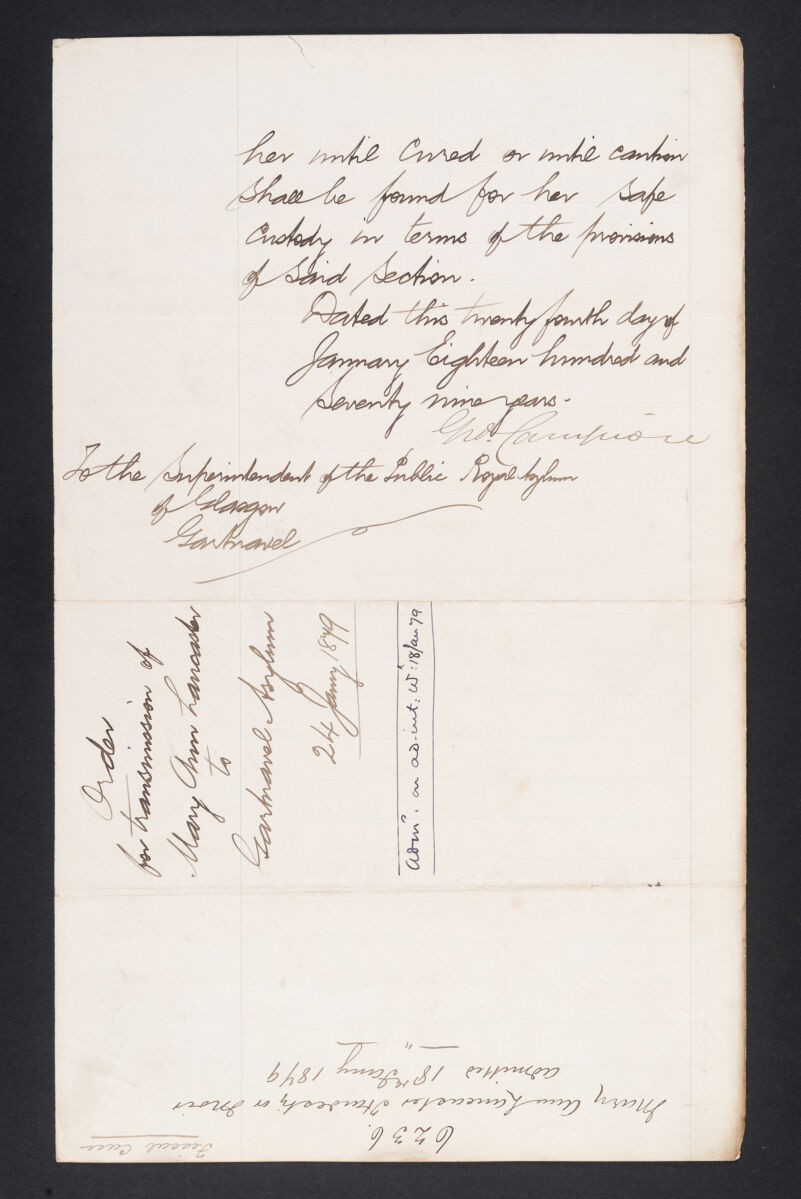 her until Cured or until caution
Shall be found for her safe
Custody in terms of the provisions
of said section.
Dated this twenty fourth day of
January Eighteen hundred and
Seventy nine years.
To the Superintendent of the Public Royal Asylum
of Glasgow
Gartnavel
Order
for transmission of
Mary Ann Lancaster
to
Gartnavel Asylum
24 Jany 1879
Admd. on ad. int. Wt. 18/Jan 79
Fiscal Case
6236
Mary Ann Lancaster or Moir
admitted 18th Jany 1879